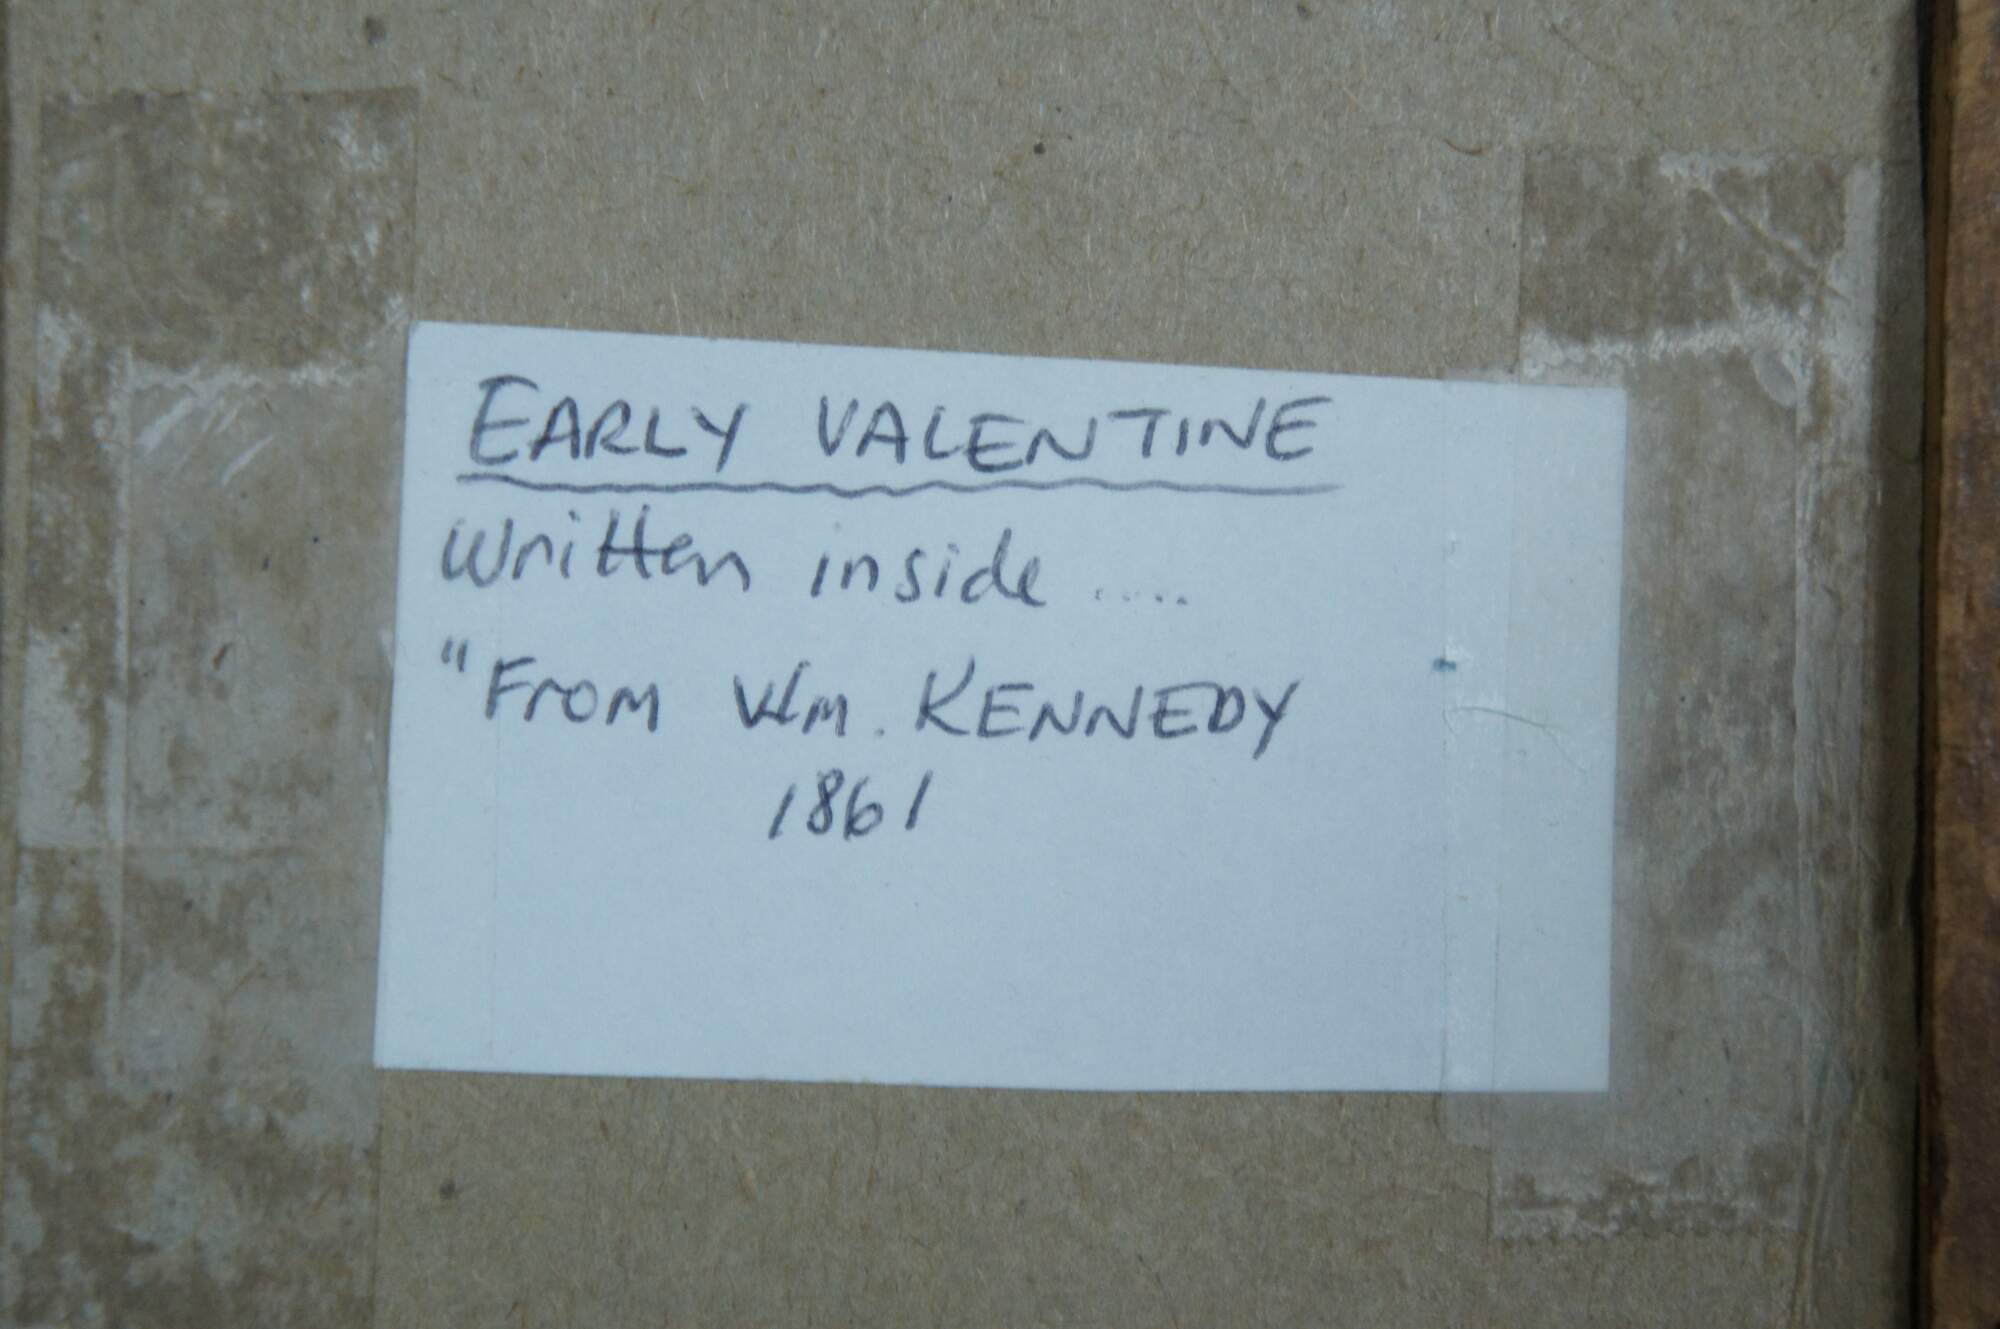 EARLY VALENTINE
Written inside .....
"From Wm. KENNEDY
1861